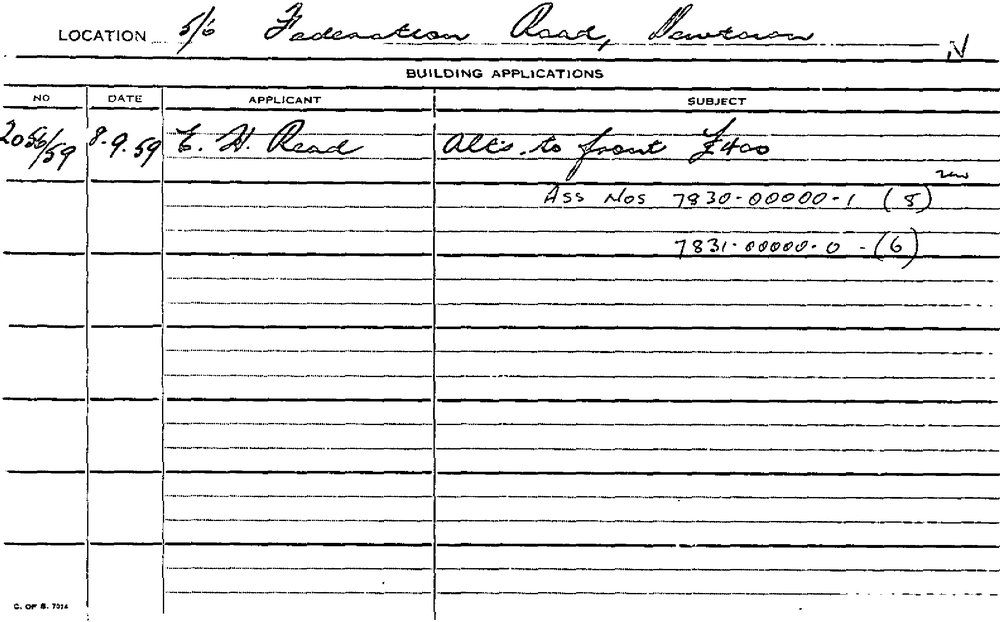 LOCATION 5/6 Federation Road, Newtown N
BUILDING APPLICATIONS
NO DATE APPLICANT SUBJECT
2056/59 8.9.59 E. H. Read Alts. to front £400
Ass Nos 7830-00000-1 (5)
7831-00000-0 - (6)
C. OF S. 7014